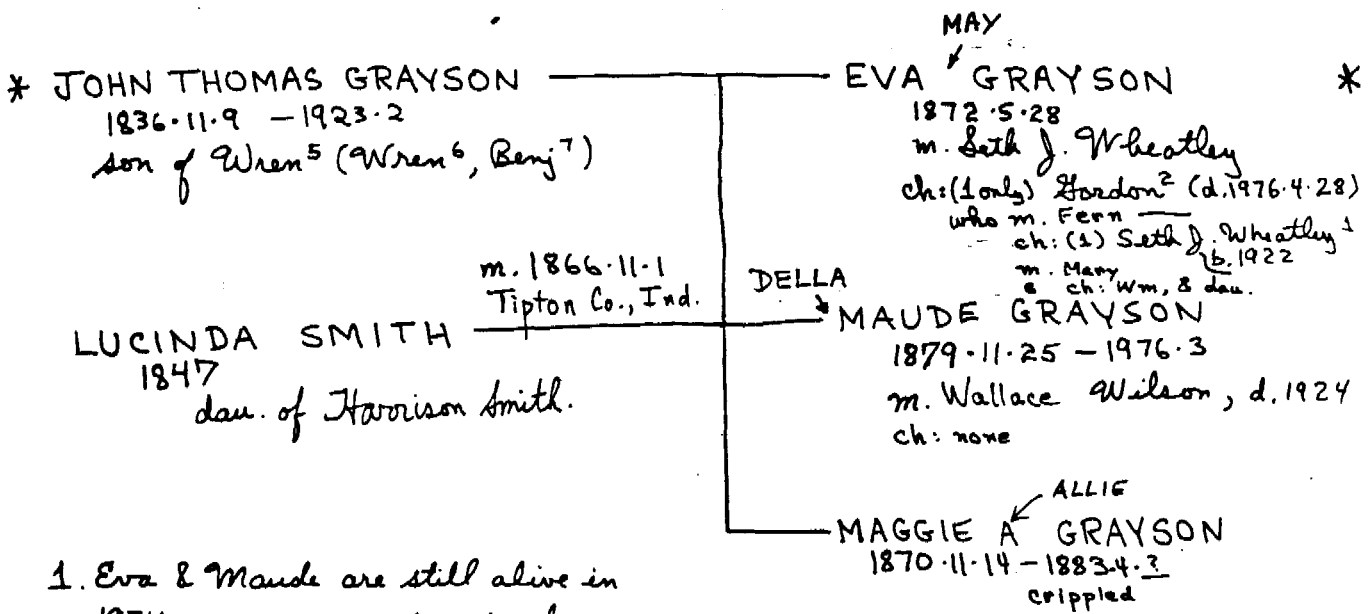 * JOHN THOMAS GRAYSON
1836·11·9 – 1923·2
son of Wren⁵ (Wren⁶, Benj⁷)
m. 1866·11·1
Tipton Co., Ind.
LUCINDA SMITH
1847
dau. of Harrison Smith.
MAY
EVA GRAYSON *
1872·5·28
m. Seth J. Wheatley
ch: (1 only) Gordon² (d. 1976·4·28)
who m. Fern —
ch: (1) Seth J. Wheatley¹
b. 1922
m. Mary
ch: Wm, & dau.
DELLA
MAUDE GRAYSON
1879·11·25 – 1976·3
m. Wallace Wilson, d. 1924
ch: none
ALLIE
MAGGIE A GRAYSON
1870·11·14 – 1883·4·?
crippled
1. Eva & Maude are still alive in